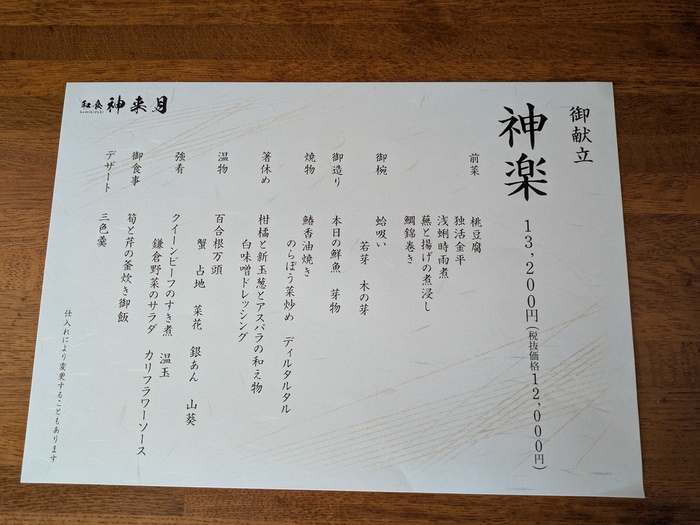 御献立
神楽 13,200円(税抜価格12,000円)
前菜
桃豆腐
独活金平
浅蜊時雨煮
蕪と揚げの煮浸し
鯛錦巻き
御椀
蛤吸い
若芽 木の芽
御造り
本日の鮮魚 芽物
焼物
鰆香油焼き
のらぼう菜炒め ディルタルタル
箸休め
柑橘と新玉葱とアスパラの和え物
白味噌ドレッシング
温物
百合根万頭
蟹 占地 菜花 銀あん 山葵
強肴
クイーンビーフのすき煮 温玉
鎌倉野菜のサラダ カリフラワーソース
御食事
筍と芹の釜炊き御飯
デザート
三色羹
仕入れにより変更することもあります
和食 神来月